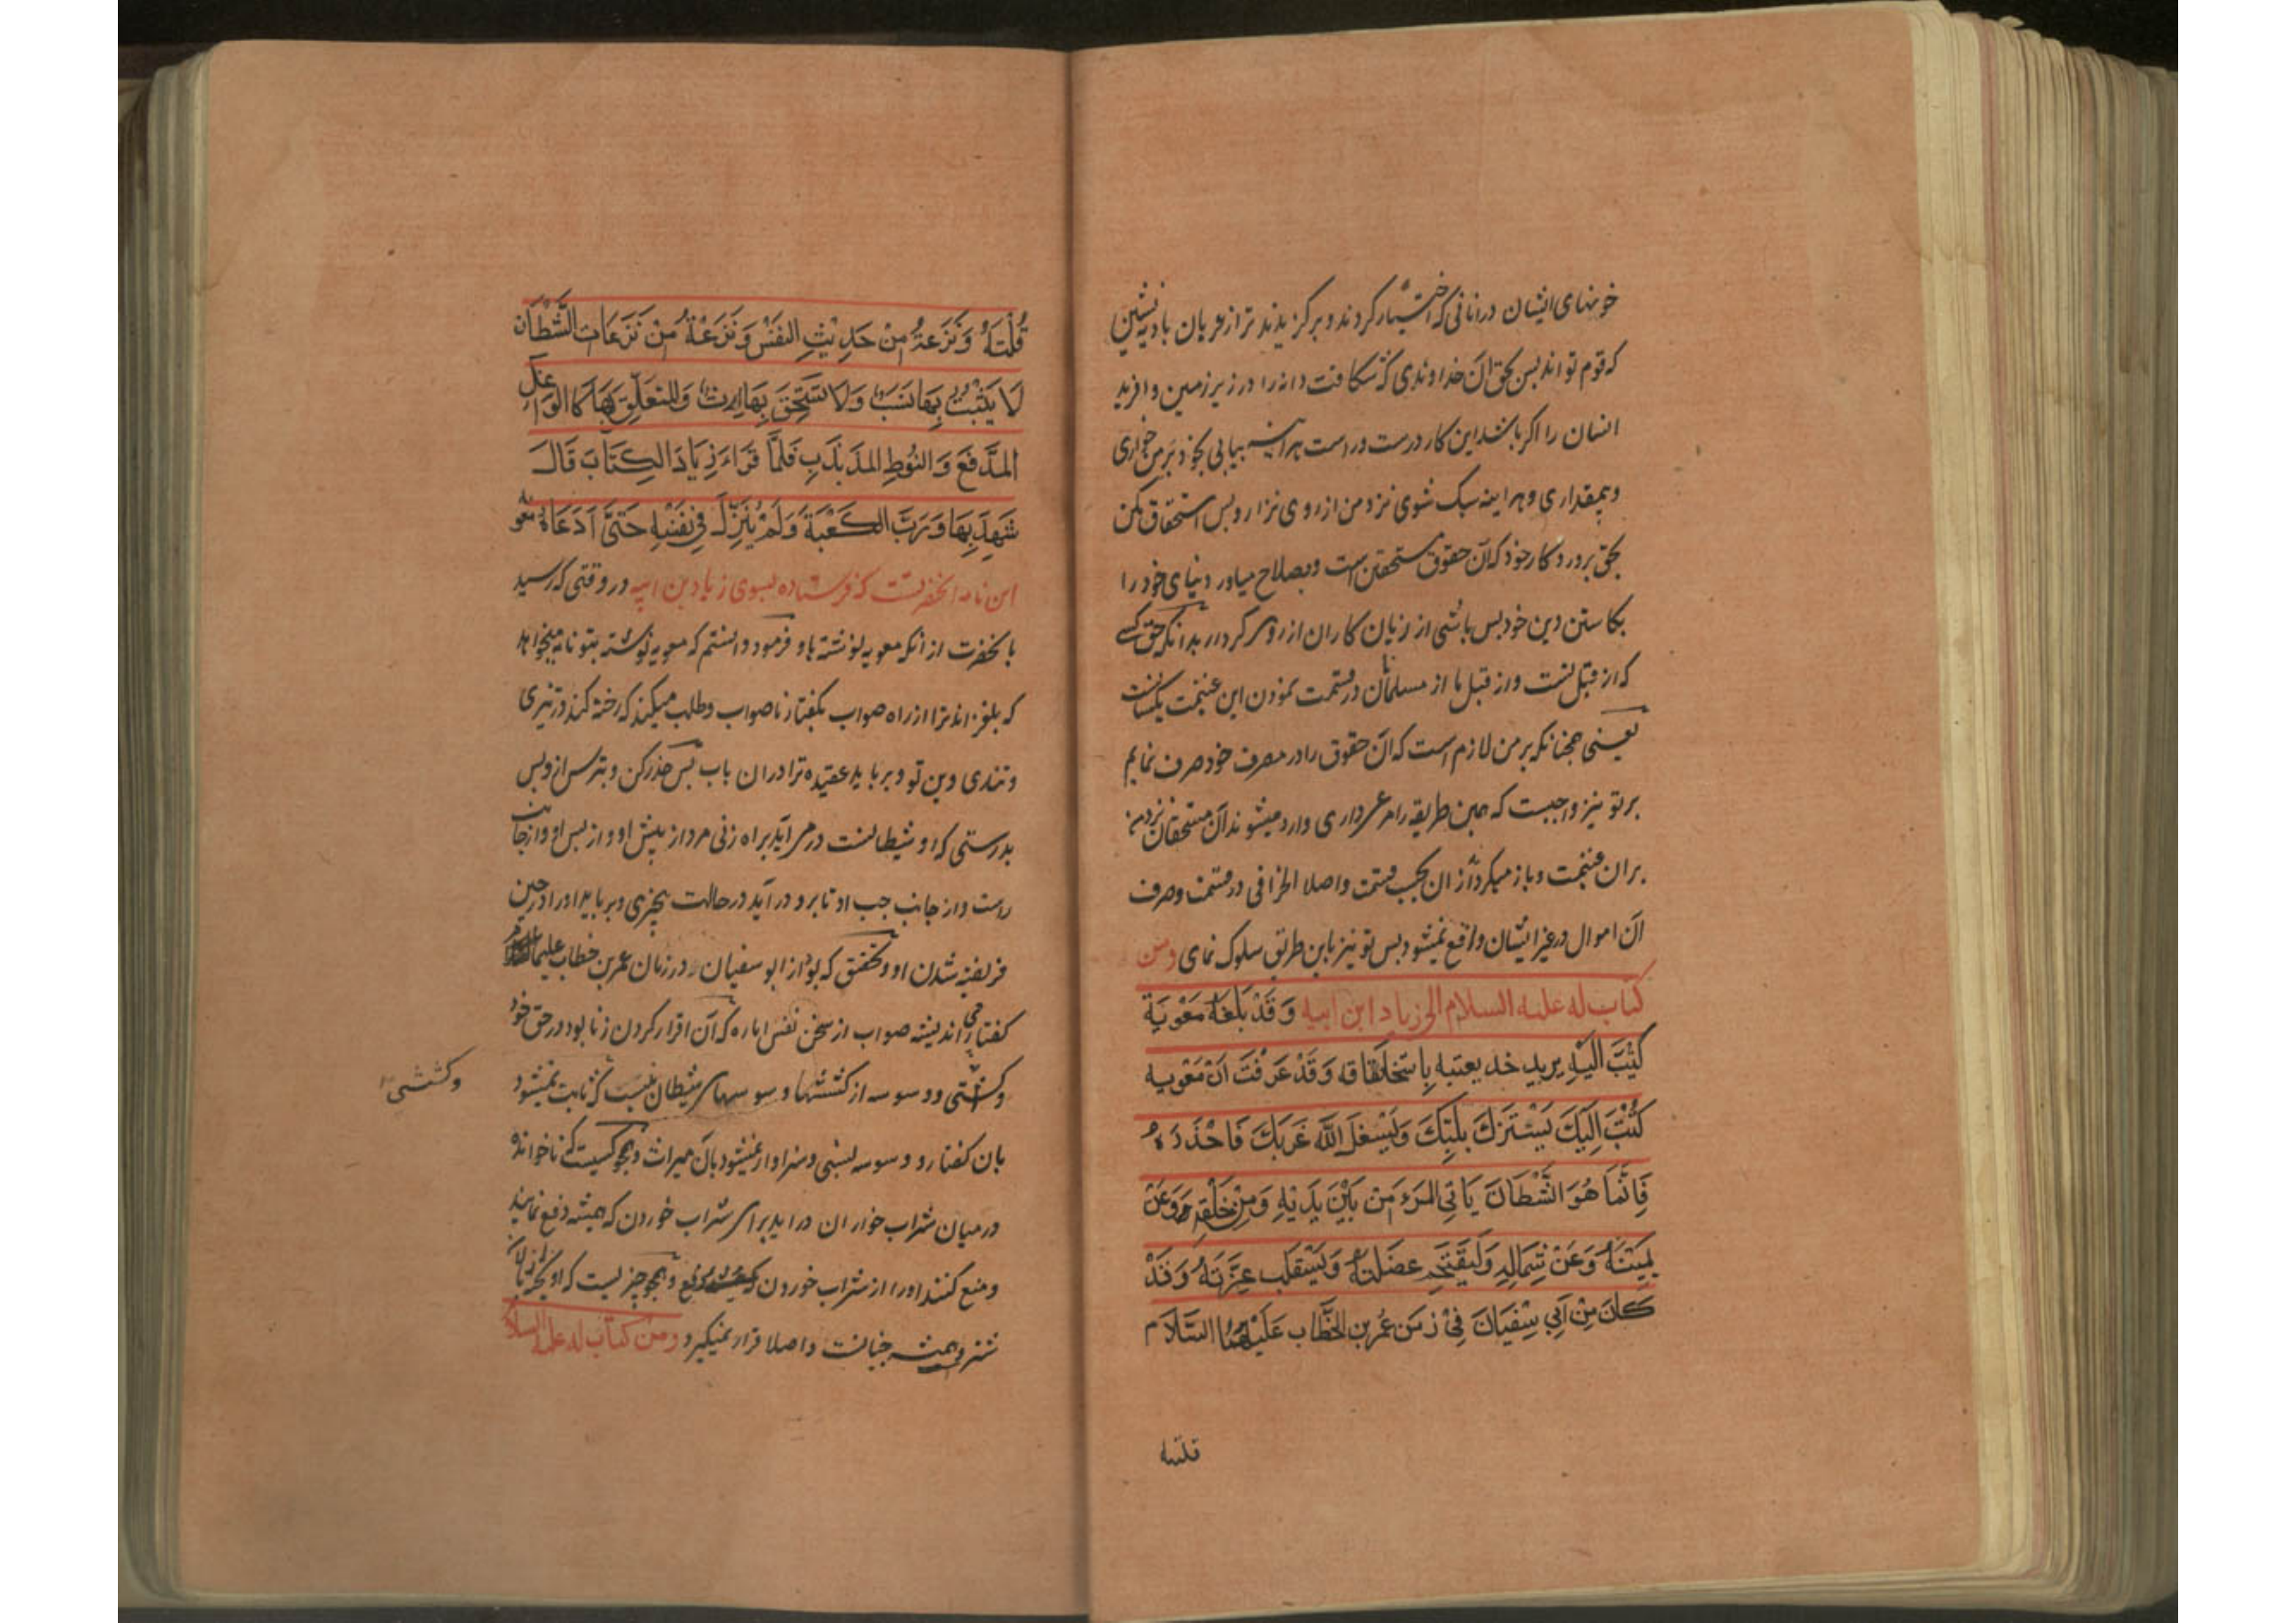 خونهای ایشان درانانی که اختیار کردند و برکزیدند ترا از عربان بادیه نشین
که قوم تو اند بس بحق آن خداوندی که شکافت دانه را در زیر زمین و افرید
انسان را اکر باشد این کار درست و راست هراینه بیابی بخود بر من خواری
و بیمقداری و هراینه سبک شوی نزد من از روی ترازو بس استخفاف مکن
بحق پروردکار خود که آن حقوق مستحقین است و بصلاح میاور دنیای خود را
بکاستن دین خود بس باشی از زیان کاران از روی کردار بدانکه حق کسی
که از قبل تست و از قبل ما از مسلمانان در قسمت نمودن این غنیمت یکسانست
یعنی همچنانکه بر من لازم است که آن حقوق را در مصرف خود صرف نمایم
بر تو نیز واجبست که همین طریقه را مرعی داری وارد میشوند آن مستحقان نزد من
بران غنیمت و باز میکردند ازان بحسب قسمت و اصلا انحرافی در قسمت و صرف
آن اموال در غیر ایشان واقع نمیشود بس تو نیز باین طریق سلوک نمای ومن
کتاب له علیه السلام الی زیاد ابن ابیه وَقَدْ بَلَغَهُ مَعْوِیَةَ
کَتَبَ اِلَیْهِ یرید خدیعته بِاستِلحَاقه وَقَدْ عَرَفْتَ اَنَّ مَعْوِیه
کَتَبَ اِلَیْكَ یَسْتَزِلُّ لُبَّكَ وَیَسْتَفِلُّ غَرْبَكَ فَاحْذَرْهُ
فَاِنَّمَا هُوَ الشَّیْطَانُ یَاتِی المَرْءَ مِنْ بَیْنِ یَدَیْهِ وَمِنْ خَلْفِهِ وَعَنْ
یَمِیْنِهِ وَعَنْ شِمَالِهِ وَلِیَقْتَحِمَ غَفْلَتَهُ وَیَسْتَلِبَ غِرَّتَهُ وَقَدْ
کَانَ مِنْ اَبِی سُفْیَانَ فِیْ زَمَنِ عُمَرَ بنِ الخَطَّابِ عَلَیْهِمَا السَّلَام
فلتة
فَلْتَةٌ وَنَزْعَةٌ مِنْ حَدِیْثِ النَفْسِ وَنَزْعَةٌ مِنْ نَزَعَاتِ الشَّیْطَانِ
لَا یَثْبُتُ بِهَا نَسَبٌ وَلَا تَسْتَحِقُّ بِهَا اِرْثٌ وَالمُتَعَلِّقُ بِهَا کَالوَاغِلِ
المُدَفَّعِ وَالنَوْطِ المُذَبْذَبِ فَلَمَّا قَرَاءَ زِیَادُ الکِتَابَ قَالَ
شَهِدَ بِهَا وَرَبِّ الکَعْبَةِ وَلَمْ یَزَلْ فِی نَفْسِهِ حَتَّی اَدْعَاهُ معویه
این نامه انحضرتست که فرستاده بسوی زیاد بن ابیه در وقتی که رسید
بانحضرت از انکه معویه نوشته باو فرمود دانستم که معویه نوشته بتو نامه میخواهد
که بلغزاند ترا از راه صواب بکفتار ناصواب و طلب میکند که رخنه کند در تیزی
و تندی دین تو و برباید عقیده ترا دران باب بس حذر کن و بترس از و بس
بدرستی که او شیطانست در می آید براه زنی مرد از پیش او و از بس او و از جانب
راست و از جانب چب او تا برو در آید در حالت بیخبری و برباید او را در حین
فریفته شدن او و بتحقیق که بود از ابو سفیان در زمان عمر بن خطاب علیهما
کفتار بی اندیشه صواب از سخن نفس اماره که آن اقرار کردن زنا بود در حق خود
وکششی و وسوسه از کششها و وسوسهای شیطان نیست که ثابت نمیشود
وکششی
بان کفتار و وسوسه نسبی و سزاوار نمیشود بآن میراث و همچو کسیست که ناخوانده
در میان شراب خواران در اید برای شراب خوردن که همیشه دفع نمایند
و منع کنند او را از شراب خوردن و همچو چیزیست که اویخته
شتر و همیشه جنبانست و اصلا قرار نمیکیرد ومن کتاب له علیه السلام